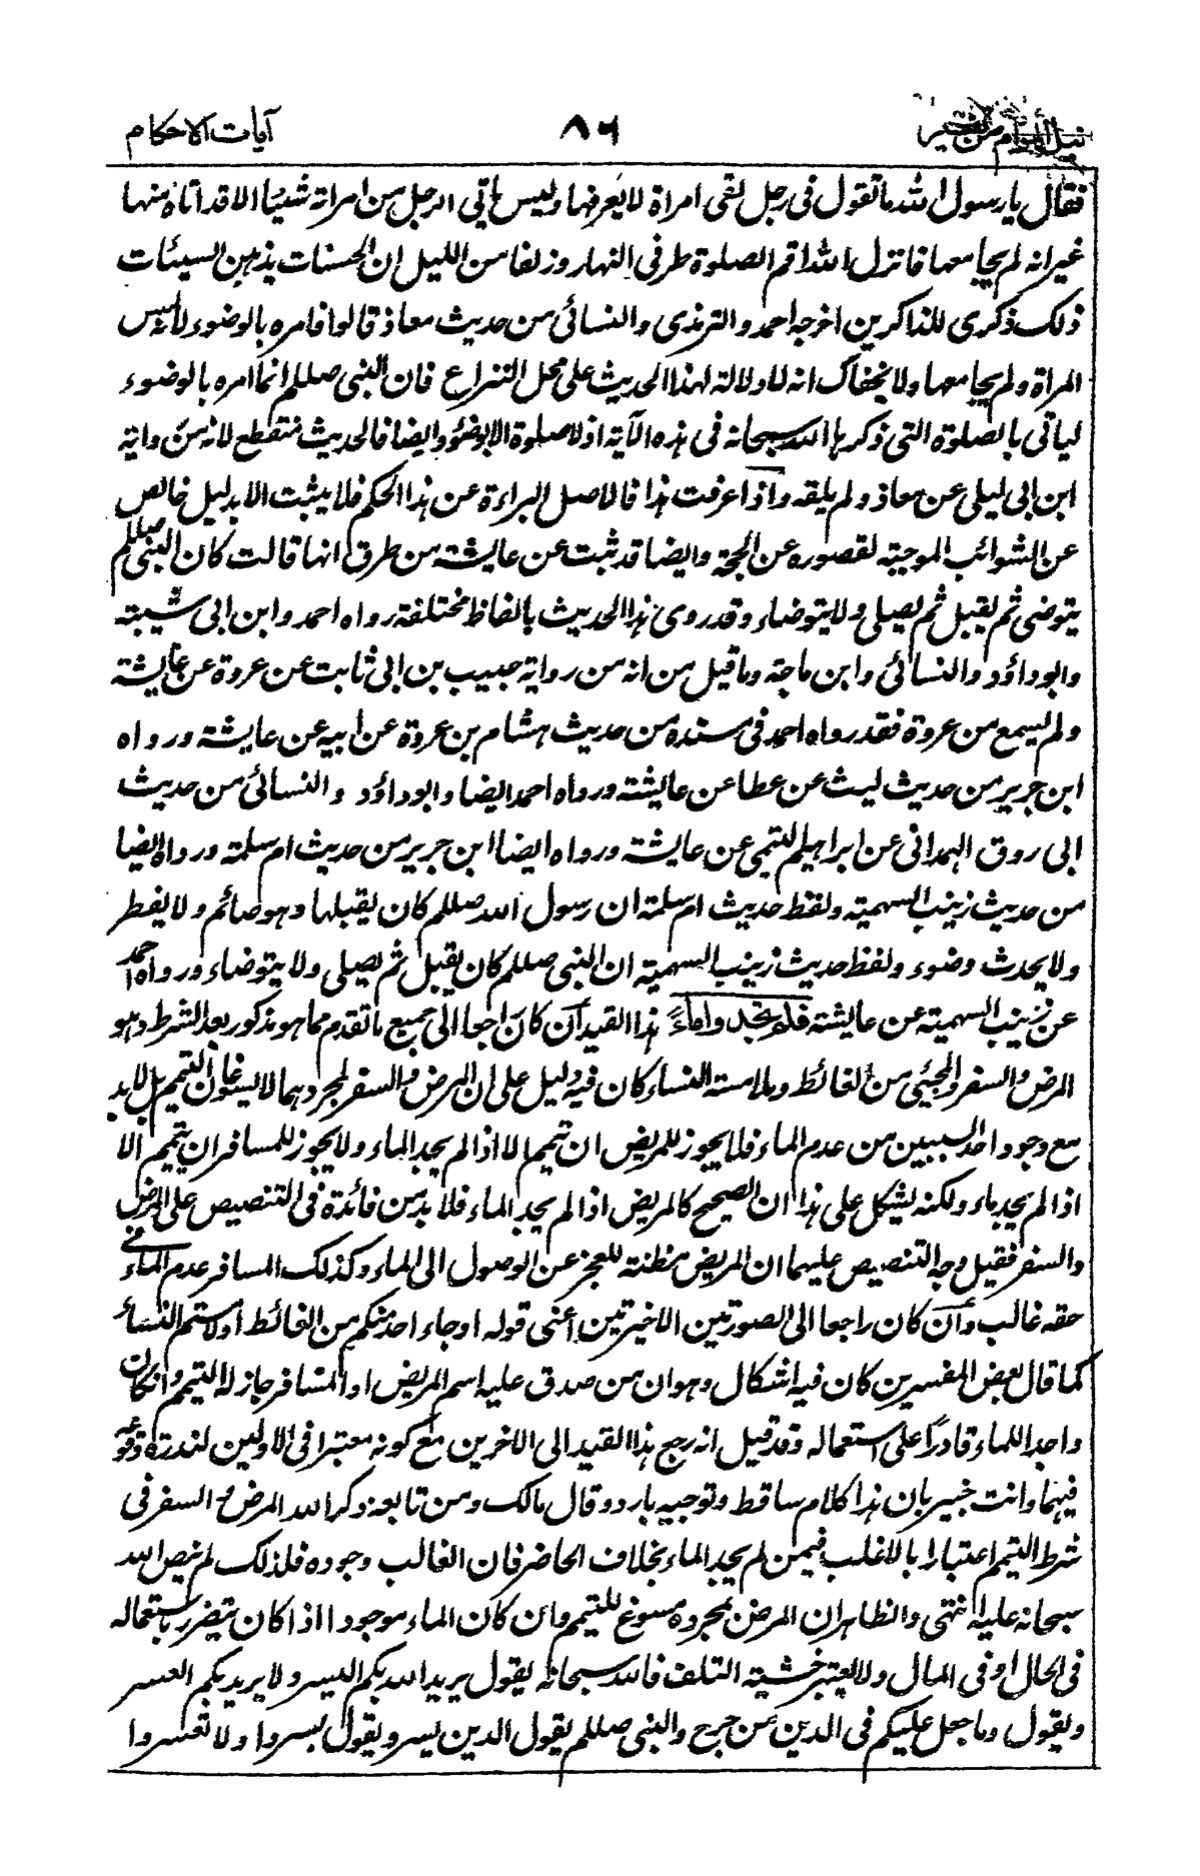 نيل المرام من تفسير ٨٦ آيات الاحكام
فقال يا رسول الله ما تقول فى رجل لقى امراة لا يعرفها وليس ياتى الرجل من امراته شيئا الا قد اتاه منها
غير انه لم يجامعها فانزل الله اقم الصلوة طرفى النهار وزلفا من الليل ان الحسنات يذهبن السيئات
ذلك ذكرى للذاكرين اخرجه احمد والترمذى والنسائى من حديث معاذ قالوا فامره بالوضوء لانه لمس
المراة ولم يجامعها ولا يخفاك انه لا دلالة لهذا الحديث على محل النزاع فان النبى صللم انما امره بالوضوء
لياتى بالصلوة التى ذكرها الله سبحانه فى هذه الآية اذ لا صلوة الا بوضوء وايضا فالحديث منقطع لانه من رواية
ابن ابى ليلى عن معاذ ولم يلقه واذا عرفت هذا فالاصل البراءة عن هذا الحكم فلا يثبت الا بدليل خالص
عن الشوائب الموجبة لقصوره عن الحجة وايضا قد ثبت عن عايشة من طرق انها قالت كان النبى صللم
يتوضى ثم يقبل ثم يصلى ولا يتوضاء وقد روى هذا الحديث بالفاظ مختلفة رواه احمد وابن ابى شيبة
وابوداؤد والنسائى وابن ماجة وما قيل من انه من رواية حبيب بن ابى ثابت عن عروة عن عايشة
ولم يسمع من عروة فقد رواه احمد فى مسنده من حديث هشام بن عروة عن ابيه عن عايشة ورواه
ابن جرير من حديث ليث عن عطا عن عايشة ورواه احمد ايضا وابوداؤد والنسائى من حديث
ابى روق الهمدانى عن ابراهيم التيمى عن عايشة ورواه ايضا ابن جرير من حديث ام سلمة ورواه ايضا
من حديث زينب السهمية ولفظ حديث ام سلمة ان رسول الله صللم كان يقبلها وهو صائم ولا يفطر
ولا يحدث وضوء ولفظ حديث زينب السهمية ان النبى صللم كان يقبل ثم يصلى ولا يتوضاء ورواه احمد
عن زينب السهمية عن عايشة فلم تجدوا ماءً هذا القيد ان كان راجعا الى جميع ما تقدم مما هو مذكور بعد الشرط وهو
المرض والسفر والمجيئى من الغائط وملامسة النساء كان فيه دليل على ان المرض والسفر لمجردهما لا يسوغان التيمم بل لا بد
مع وجود احد السببين من عدم الماء فلا يجوز للمريض ان يتيمم الا اذا لم يجد الماء ولا يجوز للمسافر ان يتيمم الا
اذا لم يجد ماء ولكنه يشكل على هذا ان الصحيح كالمريض اذا لم يجد الماء فلا بد من فائدة فى التنصيص على المرض
والسفر فقيل وجه التنصيص عليهما ان المريض مظنة للعجز عن الوصول الى الماء وكذلك المسافر عدم الماء فى
حقه غالب وان كان راجعا الى الصورتين الاخيرتين اعنى قوله او جاء احد منكم من الغائط او لامستم النساء
كما قال بعض المفسرين كان فيه اشكال وهو ان من صدق عليه اسم المريض او المسافر جاز له التيمم وان كان
واجدا للماء قادرًا على استعماله وقد قيل انه رجع هذا القيد الى الاخرين مع كونه معتبرا فى الاولين لندرة وقوعه
فيهما وانت خبير بان هذا كلام ساقط وتوجيه بارد وقال مالك ومن تابعه ذكر الله المرض والسفر فى
شرط التيمم اعتبارا بالاغلب فيمن لم يجد الماء بخلاف الحاضر فان الغالب وجوده فلذلك لم ينص الله
سبحانه عليه انتهى والظاهر ان المرض بمجرده مسوغ للتيمم وان كان الماء موجودا اذا كان يتضرر باستعماله
فى الحال او فى المال ولا يعتبر خشية التلف فالله سبحانه يقول يريد الله بكم اليسر ولا يريد بكم العسر
ويقول وما جعل عليكم فى الدين من حرج والنبى صللم يقول الدين يسر ويقول يسروا ولا تعسروا